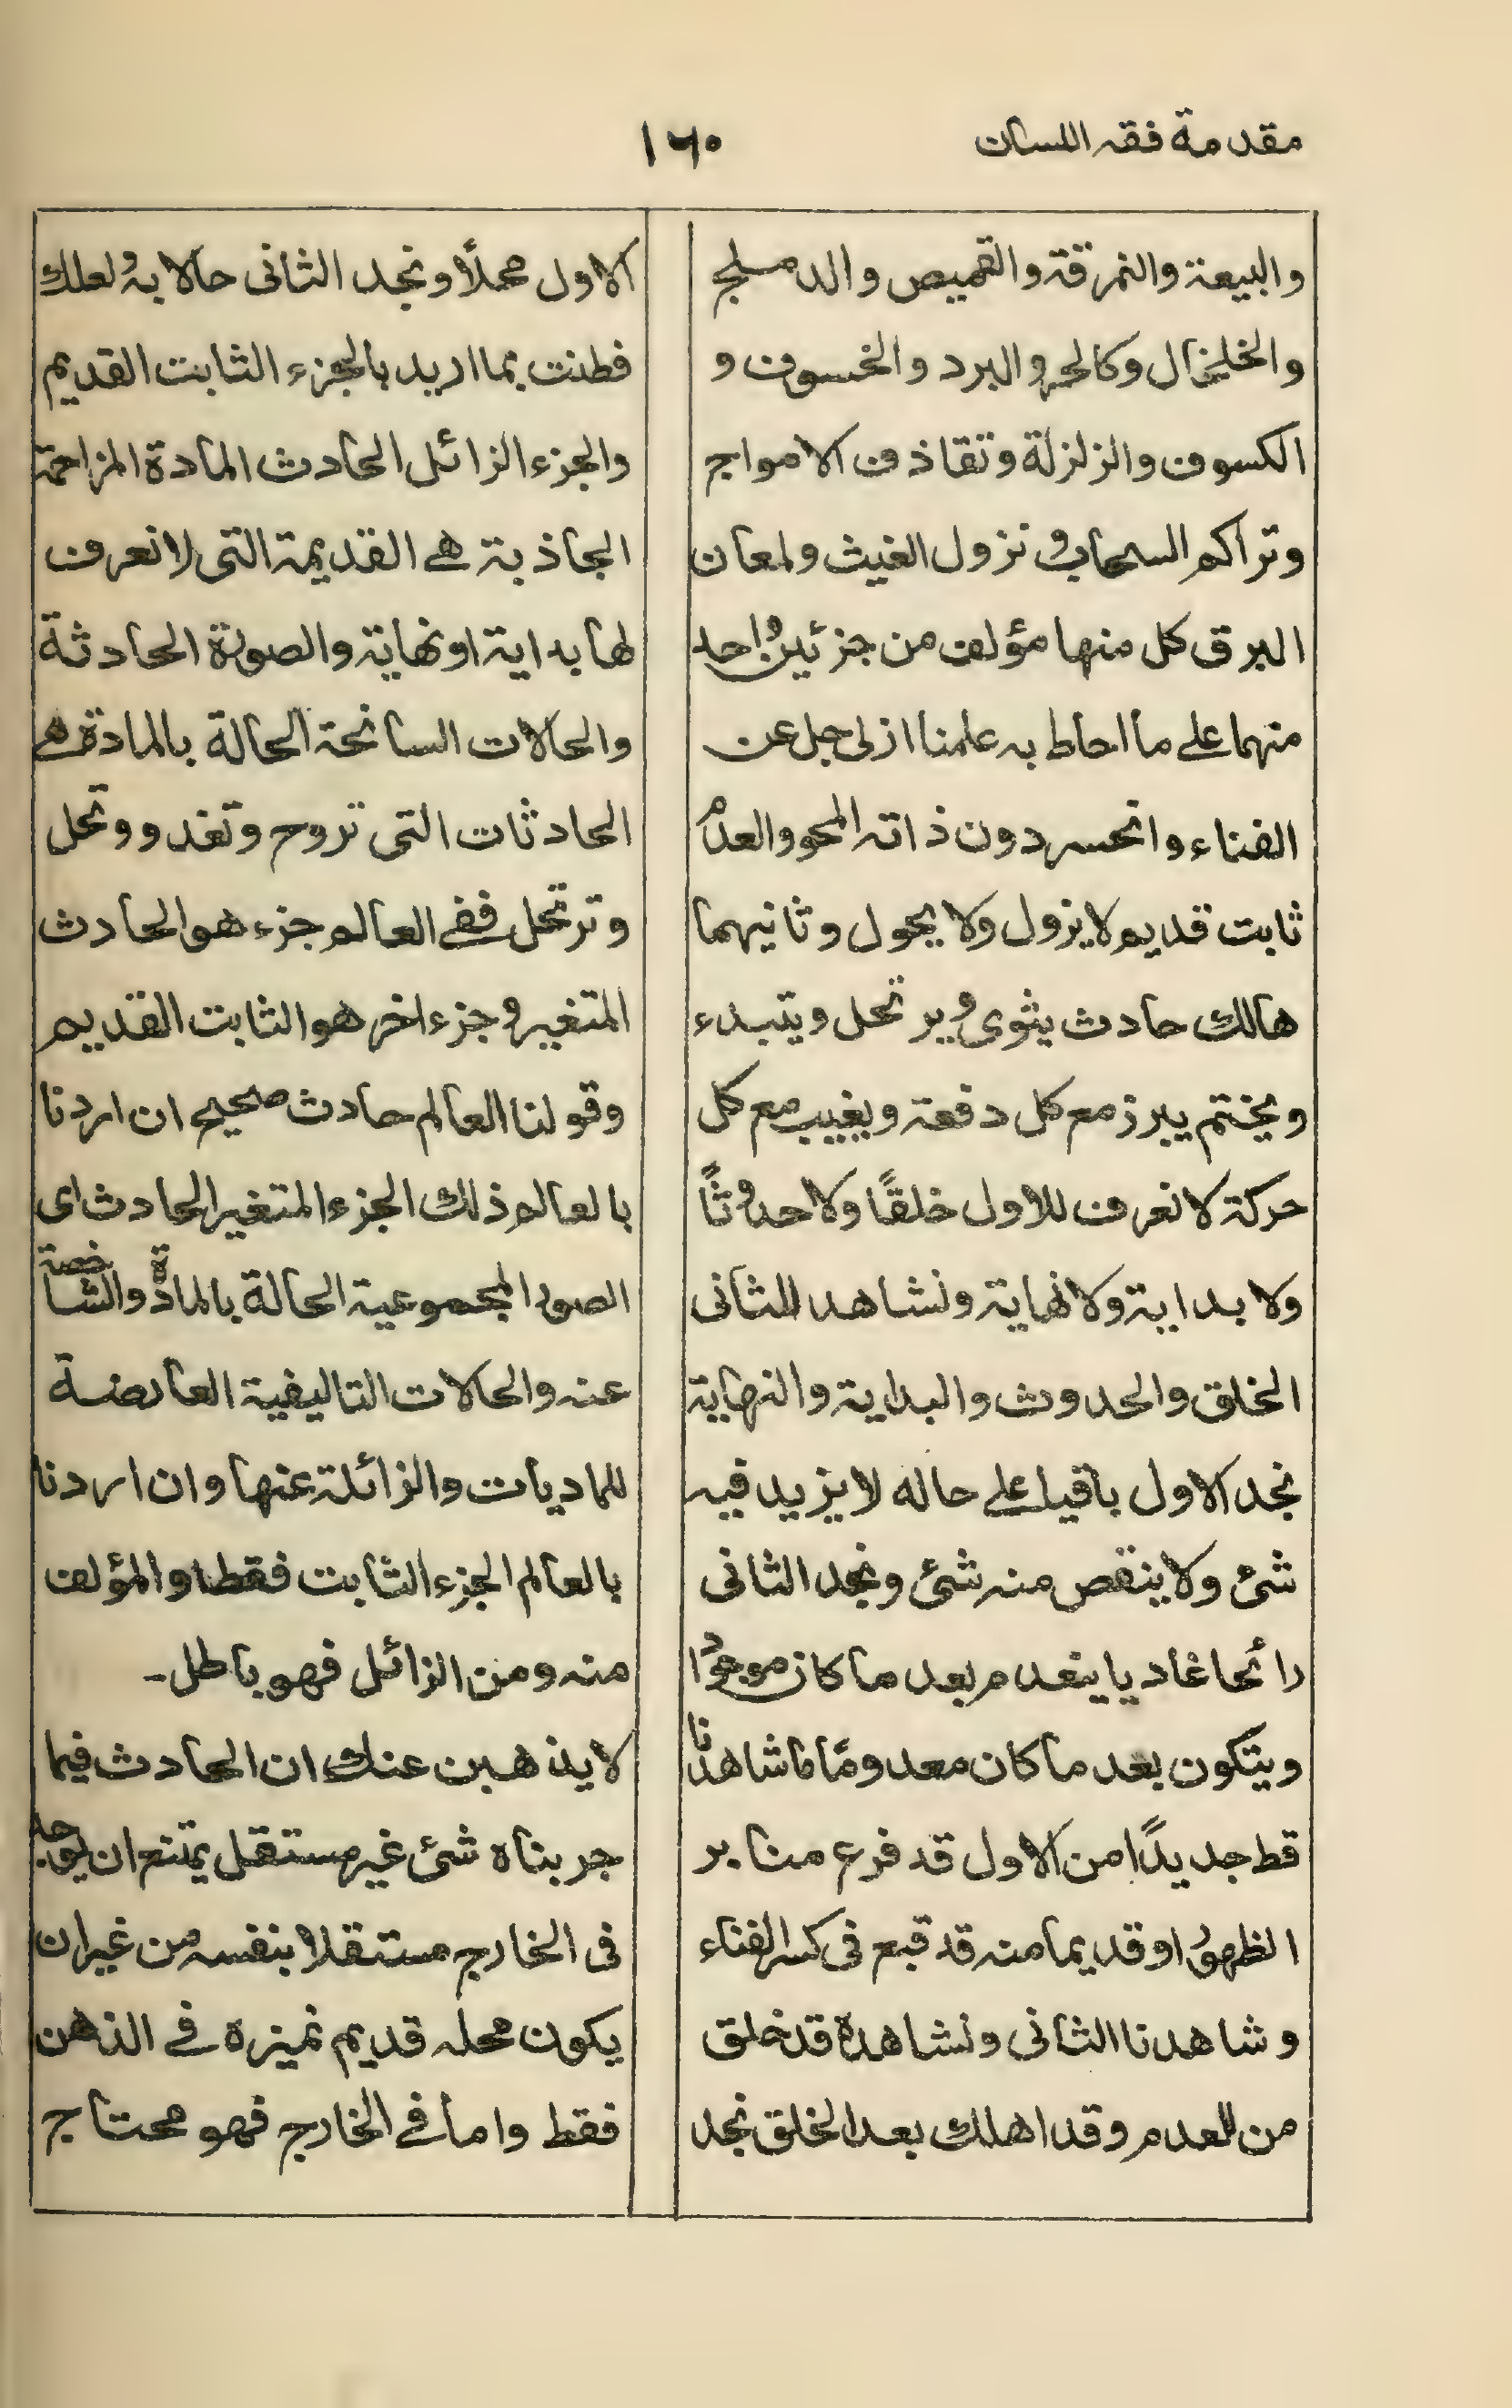 مقدمة فقه اللسان
١٦٠
والبيعة والنمرقة والقميص والدملج
والخلخال وكالحر والبرد والخسوف و
الكسوف والزلزلة وتقاذف الامواج
وتراكم السحاب ونزول الغيث ولمعان
البرق كل منها مؤلف من جزئين واحد
منهما على ما احاط به علمنا ازلى جل عن
الفناء وانحسر دون ذاته المحو والعدم
ثابت قديم لا يزول ولا يحول وثانيهما
هالك حادث يثوى ويرتحل ويتبدء
ويختم يبرز مع كل دفعة ويغيب مع كل
حركة لا نعرف للاول خلقًا ولا حدوثًا
ولا بداية ولا نهاية ونشاهد للثانى
الخلق والحدوث والبداية والنهاية
نجد الاول باقيا على حاله لا يزيد فيه
شئ ولا ينقص منه شئ ونجد الثانى
رائحا غاديا ينعدم بعد ما كان موجودا
ويتكون بعد ما كان معدومًا ما شاهدنا
قط جديدًا من الاول قد فرع منابر
الظهور او قديما منه قد قبع فى كسر الفناء
وشاهدنا الثانى ونشاهده قد خلق
من العدم وقد اهلك بعد الخلق نجد
الاول محملًا ونجد الثانى حالا به ولعلك
فطنت بما اريد بالجزء الثابت القديم
والجزء الزائل الحادث المادة المزاحمة
الجاذبة هے القديمة التى لا نعرف
لها بداية او نهاية والصورة الحادثة
والحالات السانحة الحالة بالمادة هے
الحادثات التى تروح وتغدو وتحل
وترتحل ففے العالم جزء هو الحادث
المتغير وجزء اخر هو الثابت القديم
وقولنا العالم حادث صحيح ان اردنا
بالعالم ذلك الجزء المتغير الحادث اى
الصور المجموعية الحالة بالمادة والشاخصة
عنه والحالات التاليفية العارضة
للماديات والزائلة عنها وان اردنا
بالعالم الجزء الثابت فقط او المؤلف
منه ومن الزائل فهو باطل۔
لا يذهبن عنك ان الحادث فيما
جربناه شئ غير مستقل يمتنع ان يوجد
فى الخارج مستقلا بنفسه من غير ان
يكون محله قديم نميزه فے الذهن
فقط واما فے الخارج فهو محتاج